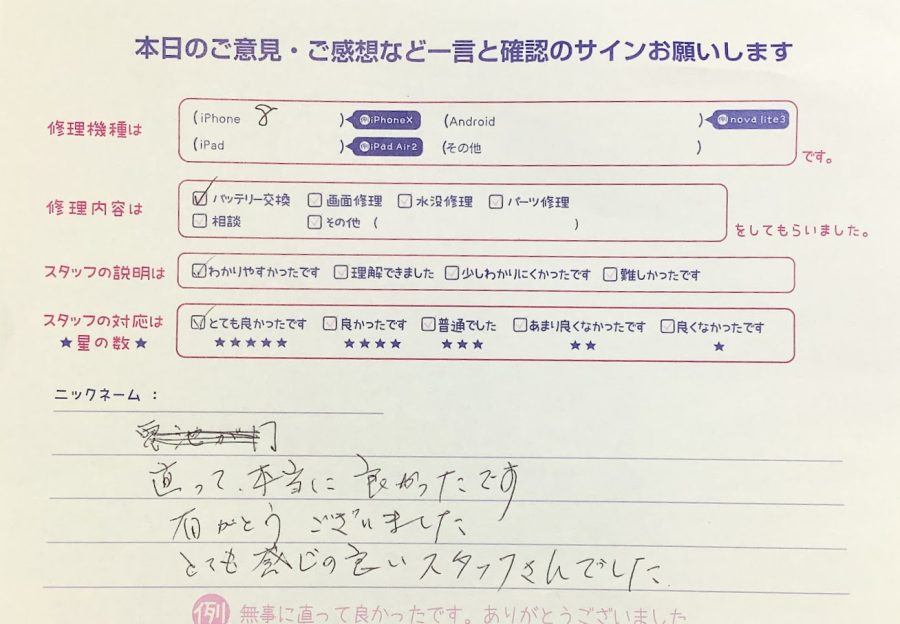 本日のご意見・ご感想など一言と確認のサインお願いします
修理機種は (iPhone 8 ) 例iPhoneX (Android ) 例nova lite3
(iPad ) 例iPad Air2 (その他 ) です。
修理内容は バッテリー交換 画面修理 水没修理 パーツ修理
相談 その他 ( ) をしてもらいました。
スタッフの説明は わかりやすかったです 理解できました 少しわかりにくかったです 難しかったです
スタッフの対応は とても良かったです 良かったです 普通でした あまり良くなかったです 良くなかったです
★星の数★ ★★★★★ ★★★★ ★★★ ★★ ★
ニックネーム：
直って、本当に良かったです
有がとうございました
とても感じの良いスタッフさんでした。
例 無事に直って良かったです。ありがとうございました